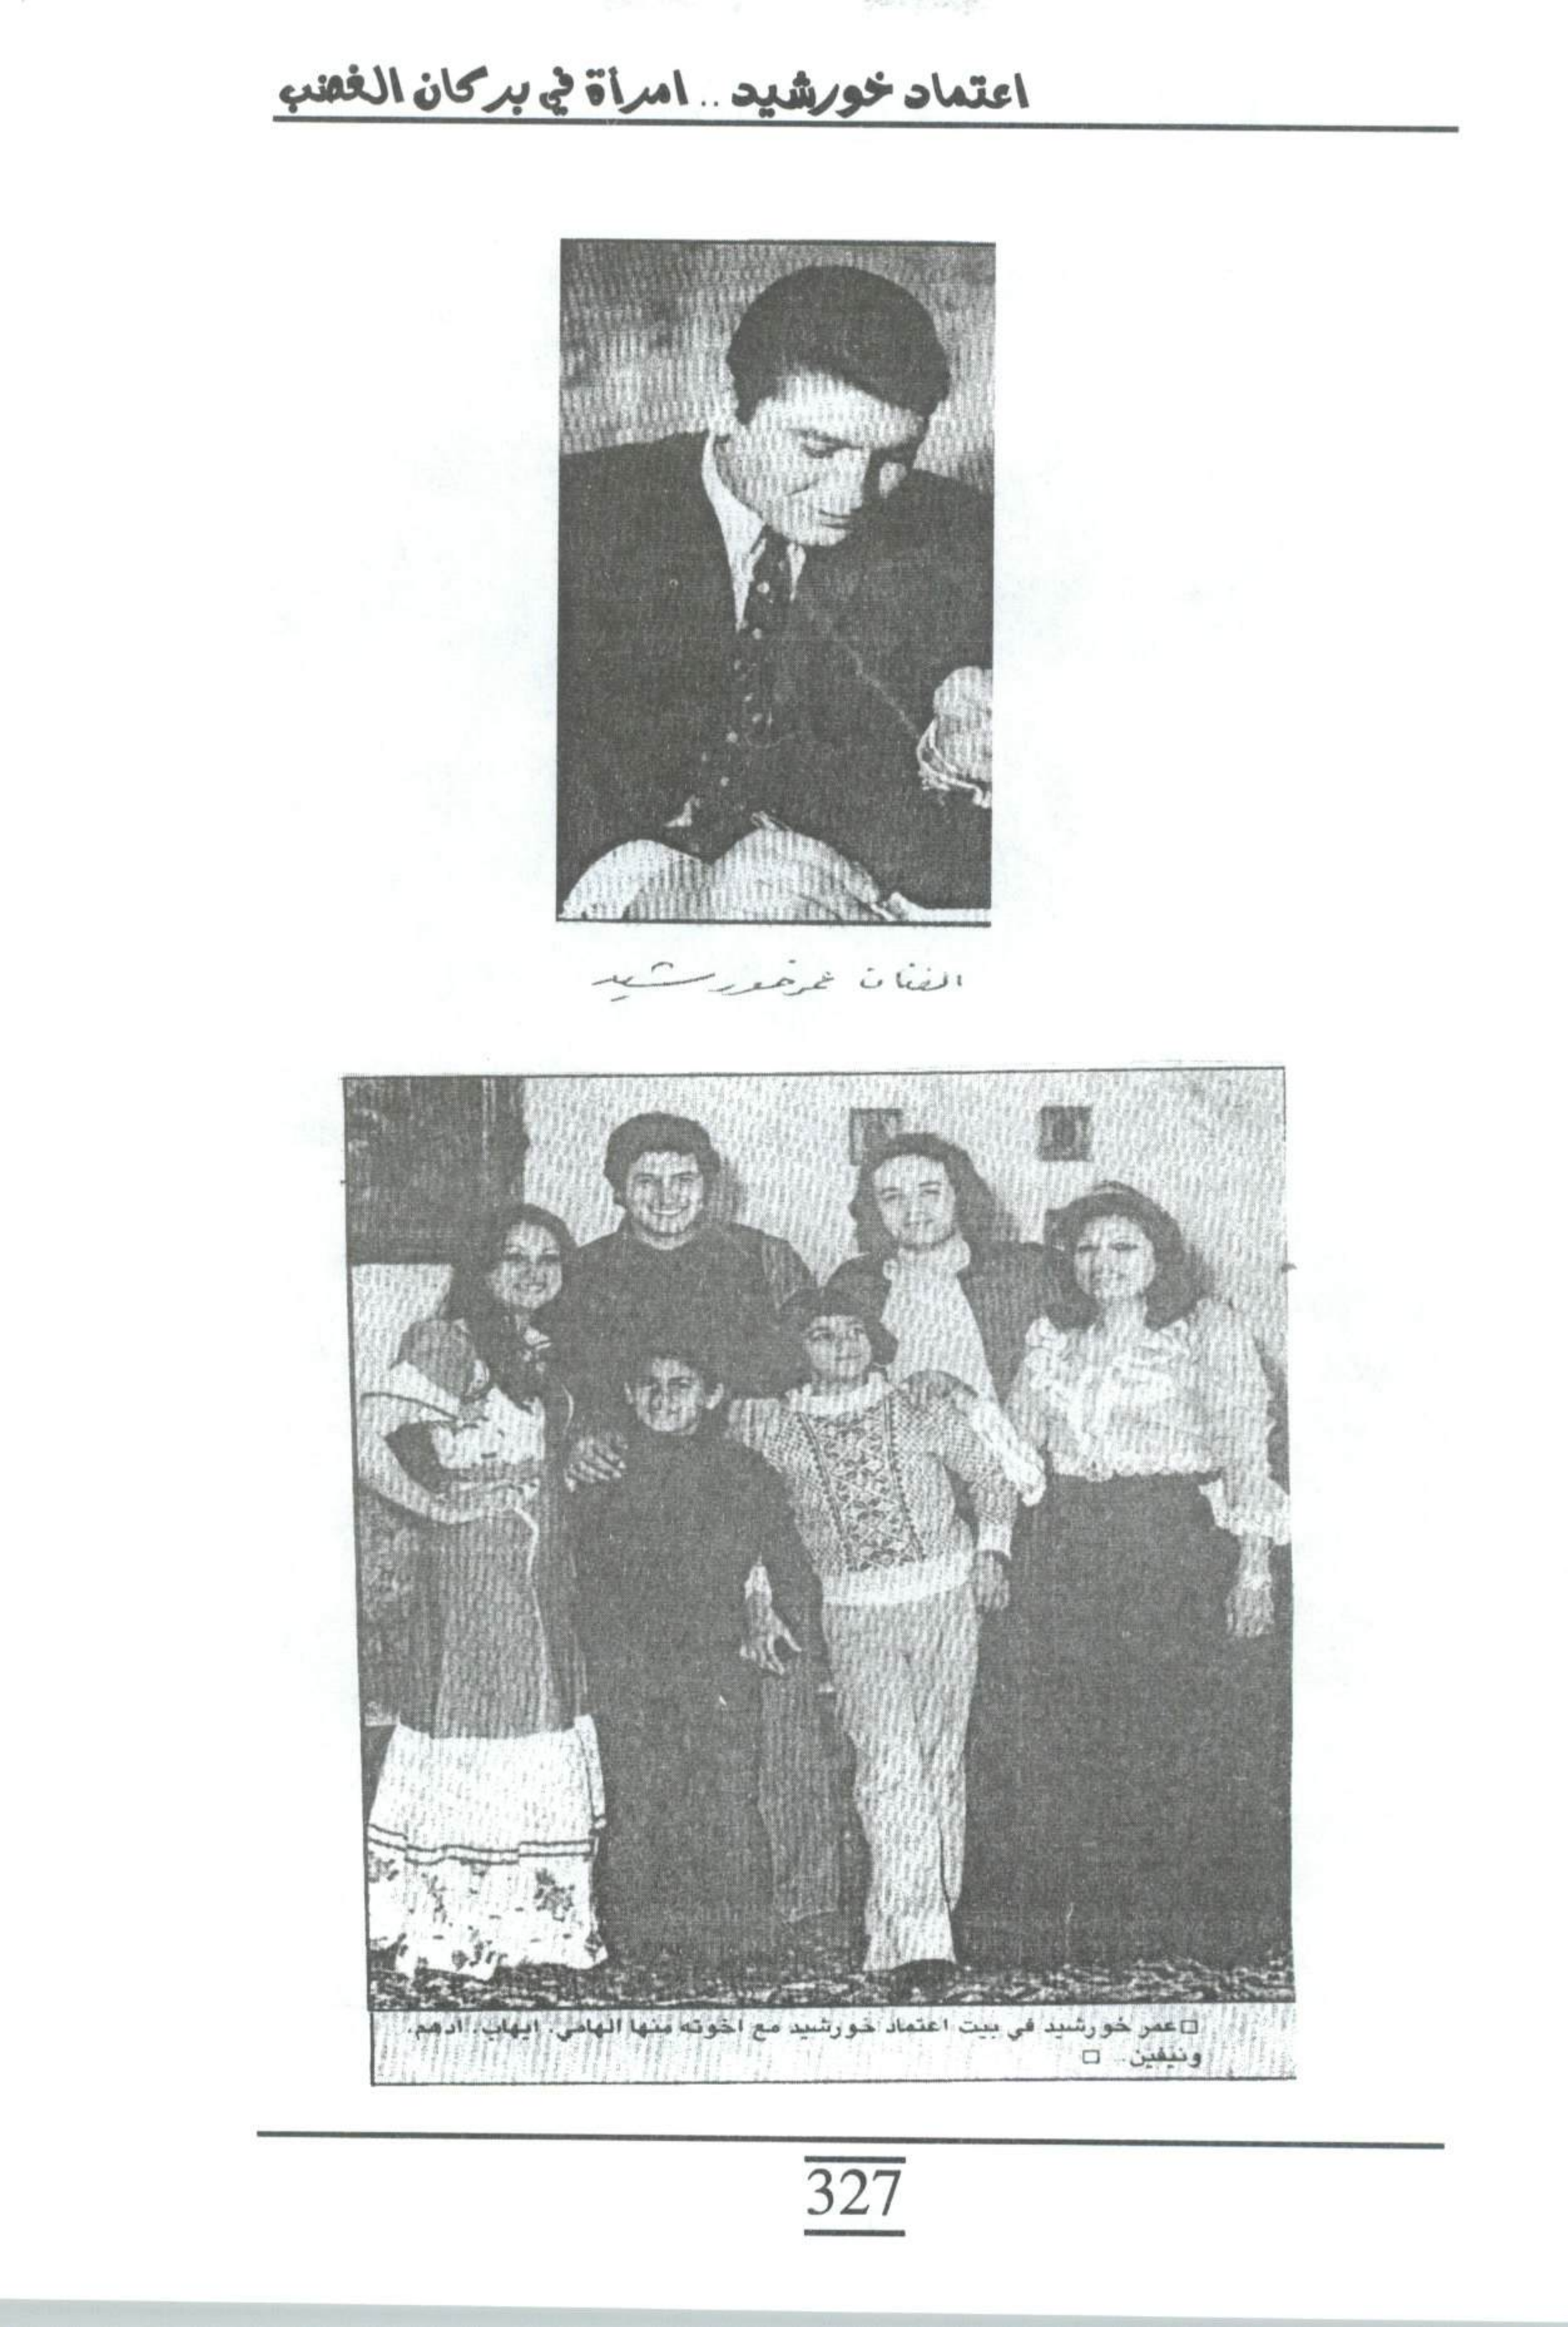 اعتماد خورشيد .. امرأة في بركان الغضب
الفنان عمر خورشيد
□ عمر خورشيد في بيت اعتماد خورشيد مع اخوته منها الهامي. ايهاب. ادهم.
ونيفين.. □
327